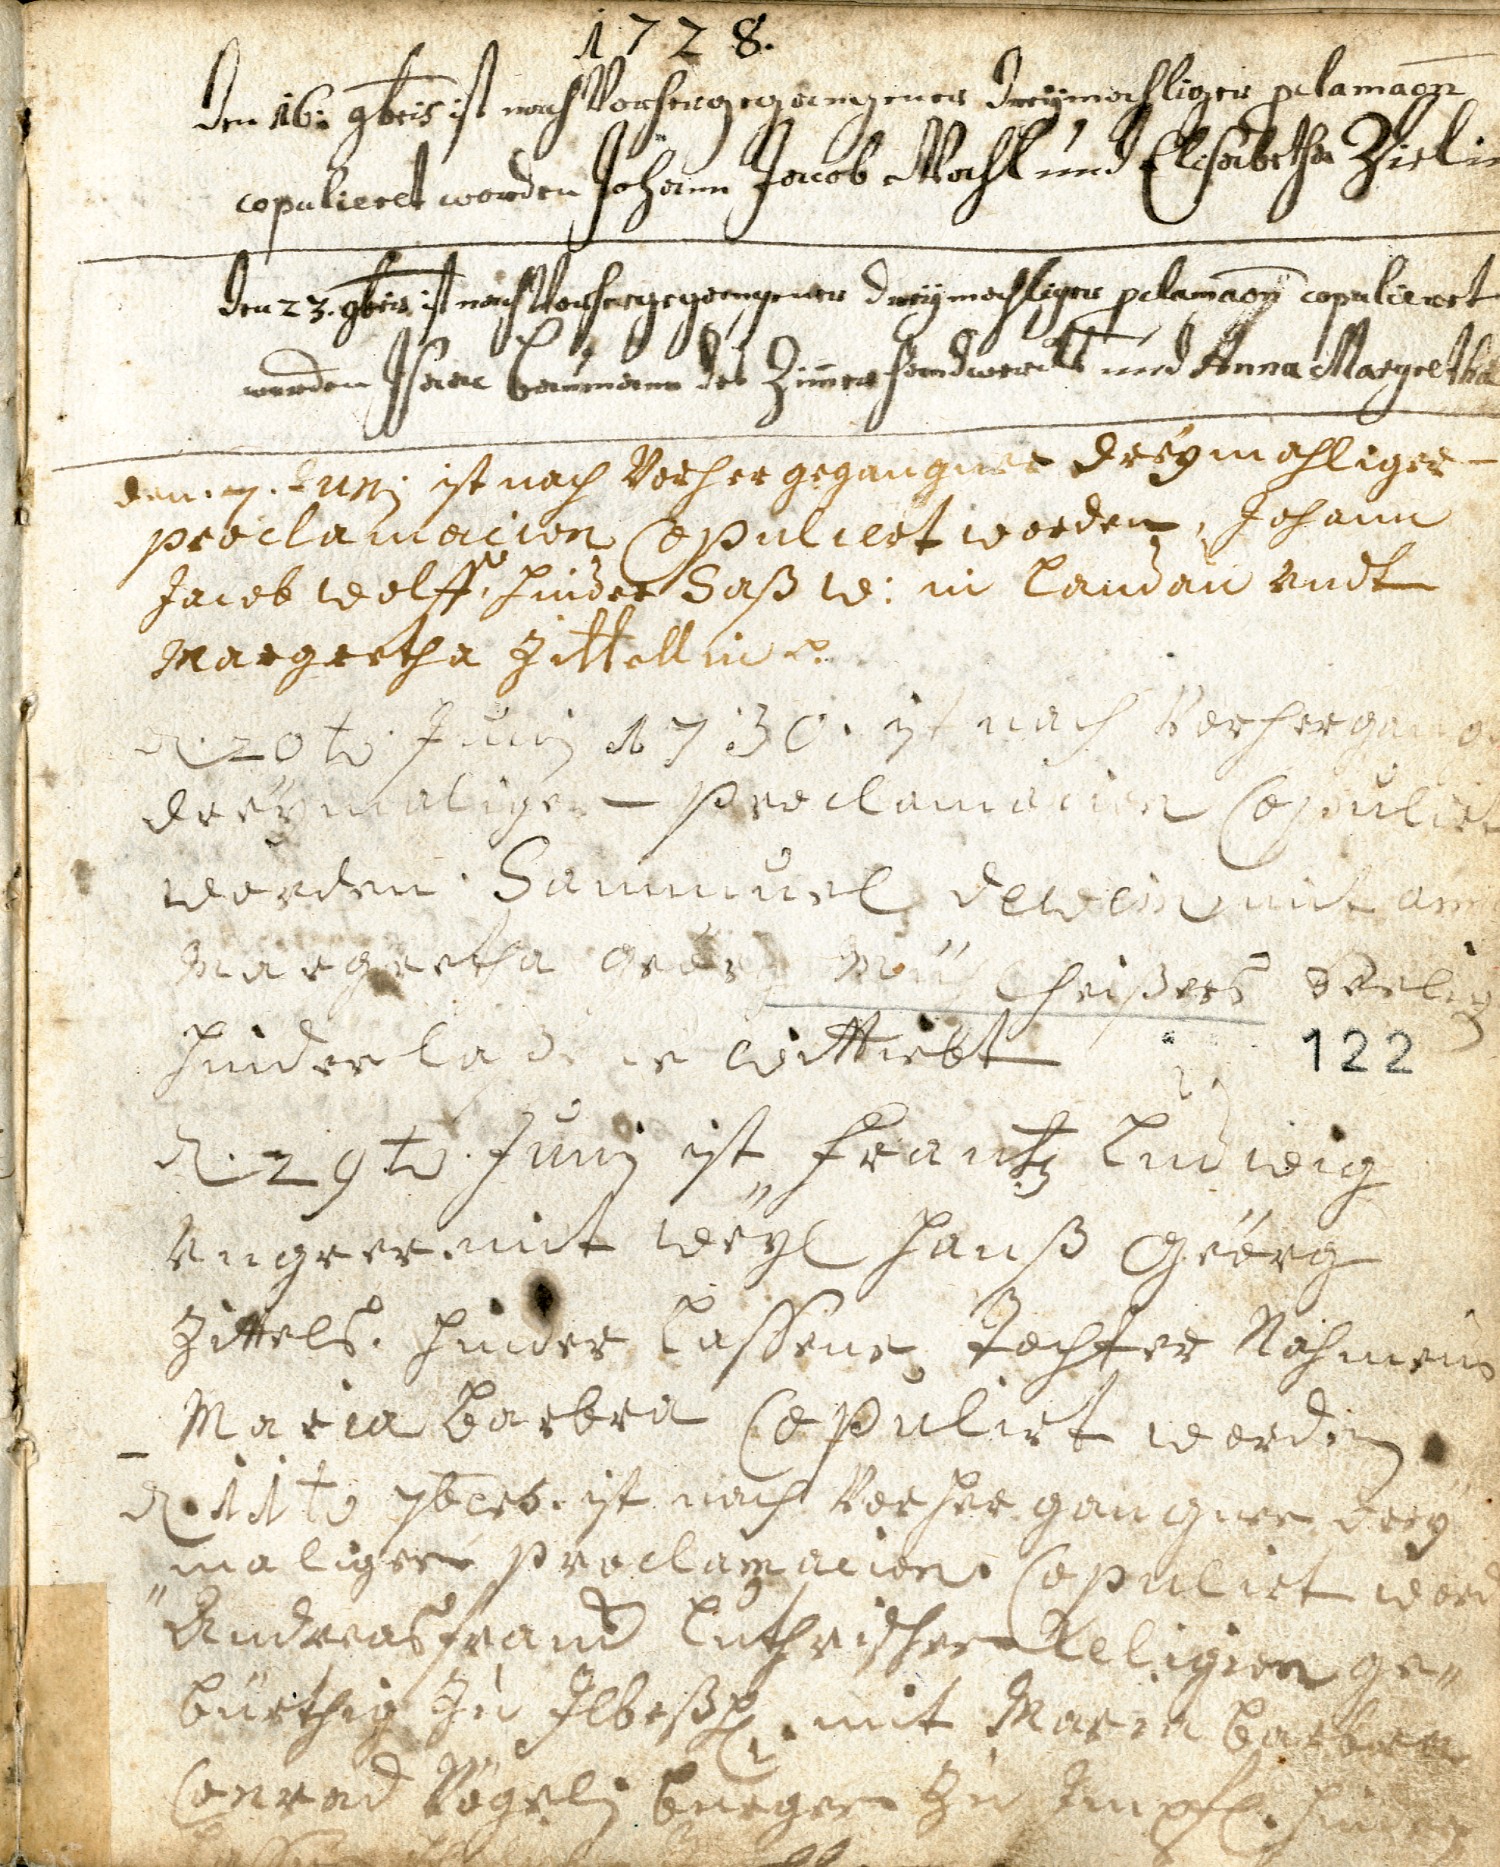 1728.
Den 16: 9bris ist nach Vorhergegangener dreymahliger pclamaon
copulieret worden Johann Jacob Mahl und Elisabetha
Den 23. 9bris ist nach Vorhergegangener dreymahliger pclamaon copulieret
worden Isaac Baumann des Zimmerhandwercks und Anna Margretha
den. 7. Junj ist nach Vorhergegangner dreymahliger
proclamacion Copuliert worden, Johann
Jacob Wolff, hinder Saß w: in Landau undt
Margretha Zittellin
d. 20te. Junj 1730. ist nach Vorhergang
dreymaliger proclamacion Copuliert
worden. Sammuel dewein mit
Margretha Georg heißers Seelig
wittiebt
122
d. 29te. Junj ist Frantz Ludwig
Ungrer mit weyl Hanß Geörg
Zittels. hinder Lassene Tochter Nahmens
Maria Barbra Copuliert worden
d. 11te 7bris. ist nach Vorhergangner drey
maliger proclamacion Copuliert word
Andreas Frand Luthrischer Religion ge„
bürthig Zu Ilbeßh. mit Maria Barbra
Conrad Vögelj burger Zu Impfl. hinder